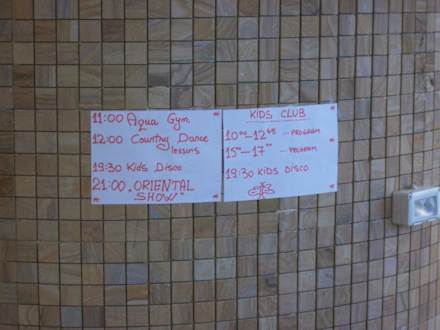 11:00 Aqua Gym
12:00 Country Dance
lessons
19:30 Kids Disco
21:00 „ORIENTAL
SHOW"
KIDS CLUB
10⁰⁰-12⁴⁵ - PROGRAM
15⁰⁰-17⁰⁰ - PROGRAM
19:30 KIDS DISCO